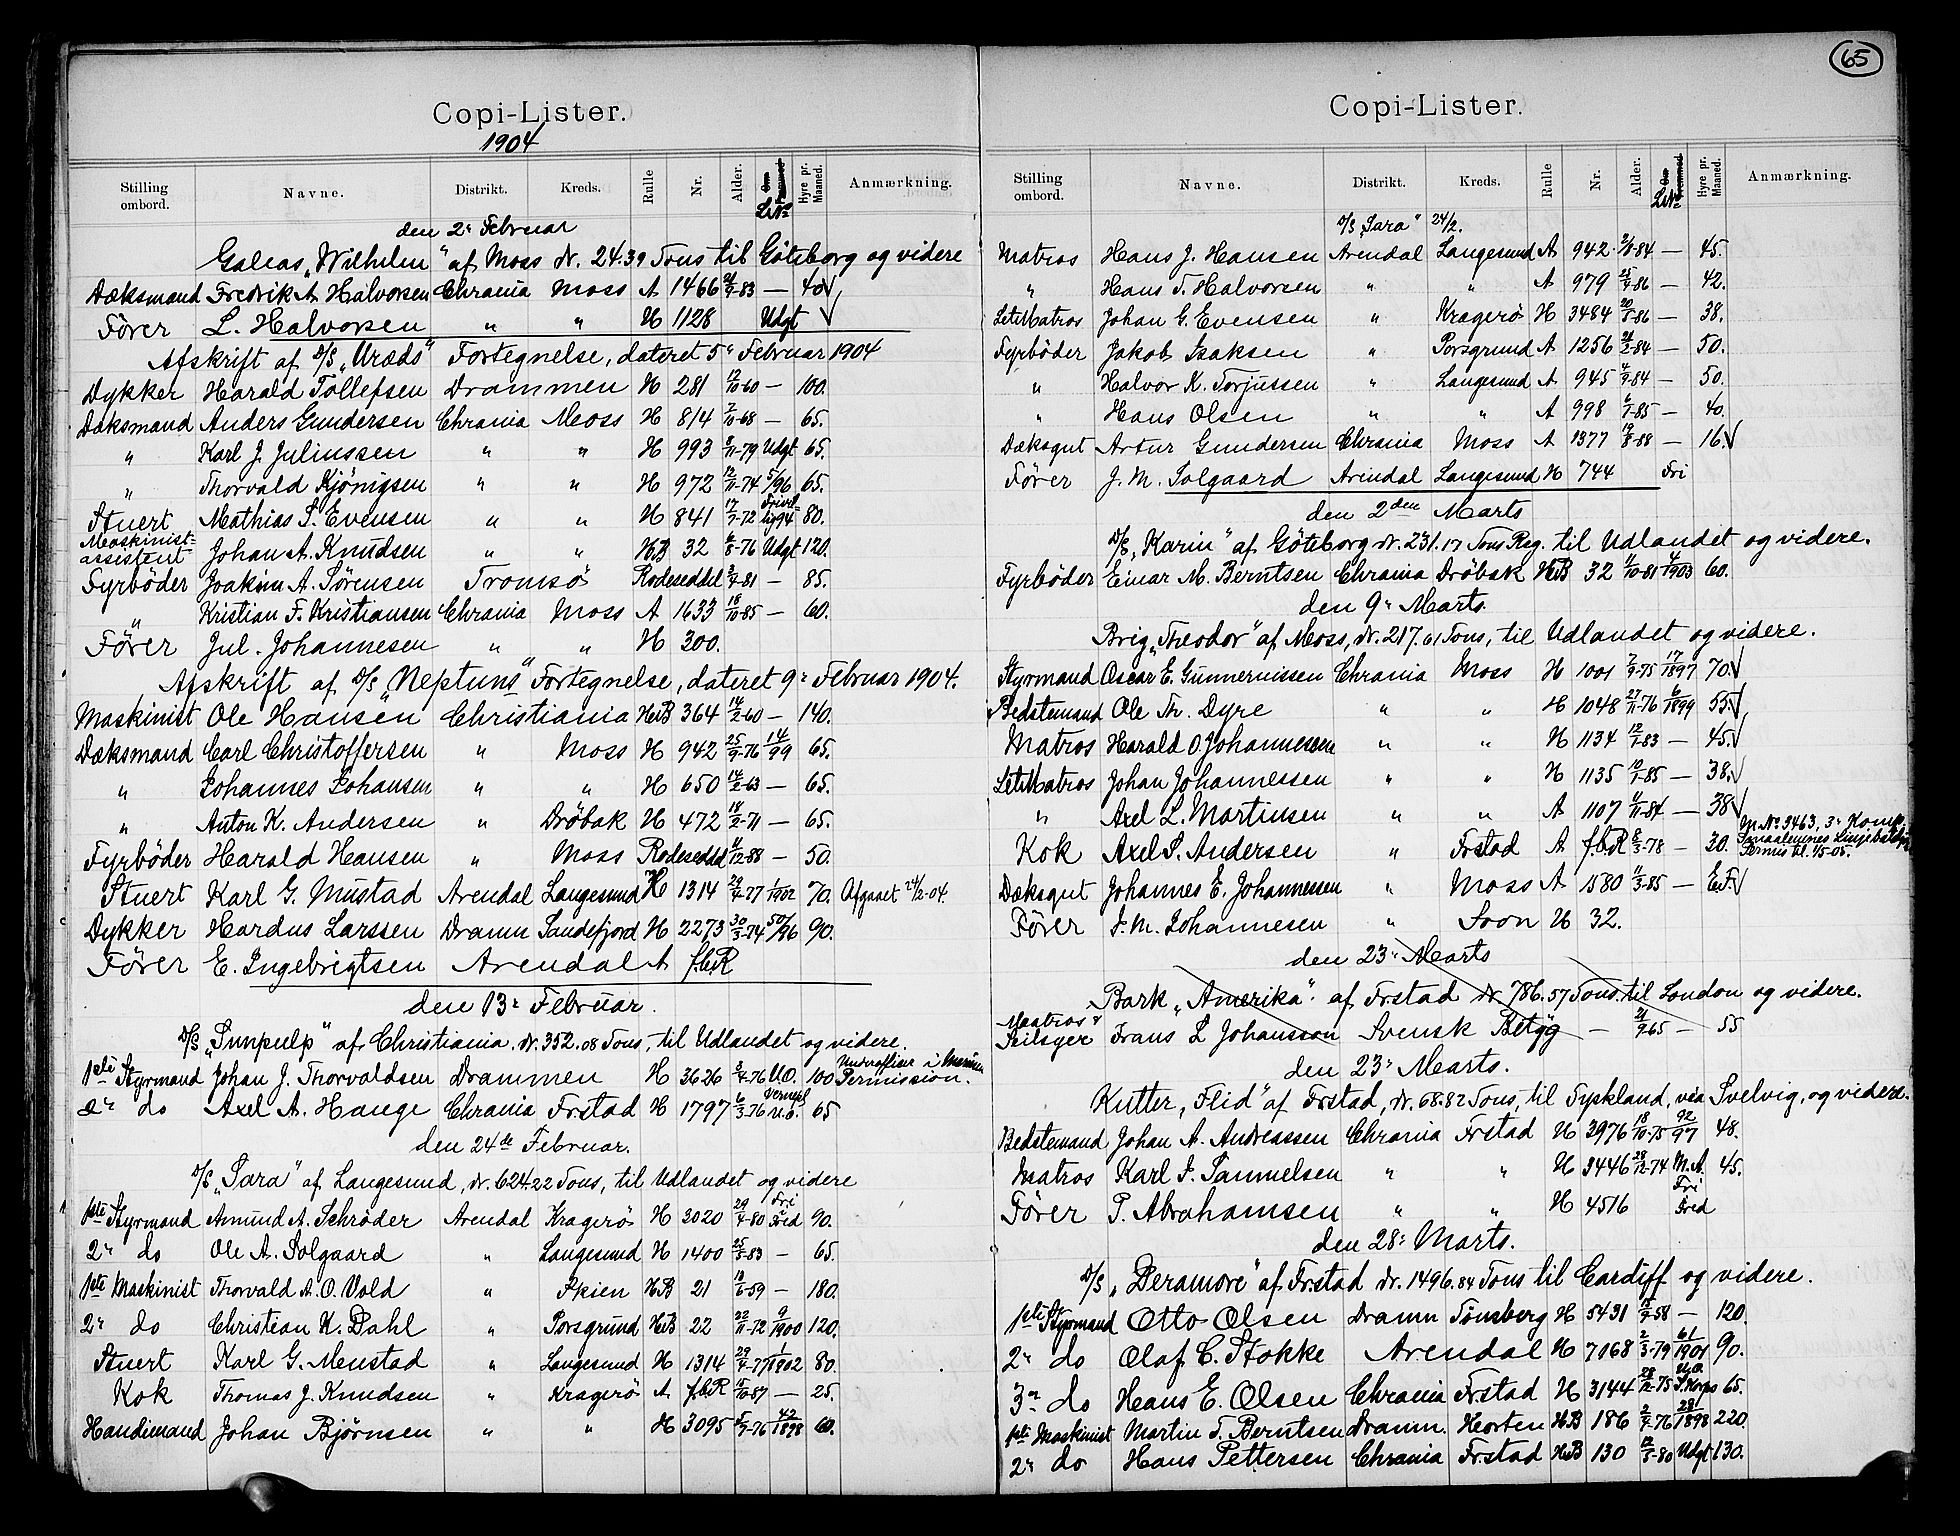 65
Copi-Lister.
1904
Stilling ombord. Navne. Distrikt. Kreds. Rulle Nr. Alder. Hyre pr. Maaned. Anmærkning.
LNo
den 2: Februar
Galeas "Wilhelm" af Moss dr. 24.39 Tons til Göteborg og videre
Dæksmand Fredrik A. Halvorsen Chrania Moss A 1466 -83 — 40
Fører L. Halvorsen " " H 1128 Udgt
Afskrift af D/S "Uræds" Fortegnelse, dateret 5: Februar 1904
Dykker Harald Tollefsen Drammen H 281 12/10-60 — 100.
Dæksmand Anders Gundersen Chrania Moss H 814 7/10-68 — 65.
" Karl J. Juliussen " " H 993 9/11-79 Udgt 65.
" Thorvald Kjönigsen " " H 972 12/11-74 5/96 65.
Stuert Mathias S. Evensen " " H 841 17/7-72 94 80.
Maskinist-assistent Johan A. Knudsen " " HB 32 6/8-76 Udgt 120.
Fyrbøder Joakim A. Sørensen Tromsø Rodeseddel -81 — 85.
" Kristian F. Kristiansen Chrania Moss A 1633 18/10-85 — 60.
Fører Jul. Johannesen " " H 300.
Afskrift af D/S "Neptuns" Fortegnelse, dateret 9: Februar 1904.
Maskinist Ole Hansen Christiania HB 364 14/2-60 — 140.
Dæksmand Carl Christoffersen " Moss H 942 25/9-76 14/99 65.
" Johannes Johansen " " H 650 14/2-63 — 65.
" Anton K. Andersen " Drøbak H 472 18/2-71 — 65.
Fyrbøder Harald Hansen " Moss Rodeseddel /12-88 — 50.
Stuert Karl G. Mustad Arendal Langesund H 1314 29/4-77 1/1902 70. Afgaaet 24/2-04.
Dykker Hardus Larssen Dramn Sandefjord H 2273 30/3-74 50/96 90.
Fører E. Ingebrigtsen Arendal A f.b.R
den 13: Februar.
D/S "Sunpulp" af Christiania, dr. 352.08 Tons, til Udlandet og videre.
1ste Styrmand Johan J. Thorvaldsen Drammen H 3626 3/4-76 U.O. 100 Underofficer i Marinen Permission.
2: do Axel A. Hauge Chrania Frstad H 1797 6/3-76 Vernepl U.O. 65
den 24de Februar.
D/S "Sara" af Langesund, dr. 624.22 Tons, til Udlandet og videre
1ste Styrmand Amund A. Schrøder Arendal Kragerø H 3020 29/4-80 Fri Fred 90.
2: do Ole A. Solgaard " Langesund H 1400 25/3-83 — 65.
1ste Maskinist Thorvald A. O. Vold " Skien HB 21 18/6-59 — 180.
2: do Christian K. Dahl " Porsgrund HB 22 22/11-72 9/1900 120.
Stuert Karl G. Mustad " Langesund H 1314 29/4-77 1/1902 80.
Kok Thomas J. Knudsen " Kragerø A f.b.R 15/10-87 — 25.
Handimand Johan Bjørnsen " " H 3095 -76 42/1898 60.
Copi-Lister.
Stilling ombord. Navne. Distrikt. Kreds. Rulle Nr. Alder. Hyre pr. Maaned. Anmærkning.
LNo
D/S "Sara" 24/2.
Matros Hans J. Hansen Arendal Langesund A 942 -84 — 45.
" Hans T. Halvorsen " " A 979 -86 — 42.
LetMatros Johan G. Evensen " Kragerø H 3484 -86 — 38.
Fyrbøder Jakob Isaksen " Porsgrund A 1256 -84 — 50.
" Halvor K. Torjussen " Langesund A 945 4/9-84 — 50.
" Hans Olsen " " A 998 -85 — 40.
Dæksgut Artur Gundersen Chrania Moss A 1377 19/8-88 — 16
Fører J. M. Solgaard Arendal Langesund H 744 Fri
den 2den Marts
D/S "Karin" af Göteborg dr. 231.17 Tons Reg. til Udlandet og videre.
Fyrbøder Einar M. Berntsen Chrania Drøbak HB 32 /10-81 4/1903 60.
den 9: Marts.
Brig "Theodor" af Moss, dr. 217.61 Tons, til Udlandet og videre.
Styrmand Oscar E. Gunnernissen Chrania Moss H 1001 7/9-75 17/1897 70
Bedstemand Ole Th. Dyre " " H 1048 27/11-76 6/1899 55.
Matros Harald O. Johannessen " " H 1134 -83 — 45.
LetMatros Johan Johannessen " " H 1135 -85 — 38.
" Axel L. Martinsen " " A 1107 /11-84 — 38
Kok Axel S. Andersen " Frstad A f.b.R 8/3-78 — 30. M. No 3463, 3: Komp. Smaalenenes
Dæksgut Johannes E. Johannessen " Moss A 1580 /3-85 —
Fører J. M. Johannesen " Soon H 32.
den 23: Marts
Bark "Amerika" af Frstad dr. 786.57 Tons til London og videre.
Matros & Seilsyer Frans L Johansson Svensk Betyg — -65 — 55
den 23: Marts.
Kutter "Flid" af Frstad, dr. 68.82 Tons, til Tyskland, via Svelvig, og videre.
Bedstemand Johan A. Andreassen Chrania Frstad H 3976 18/10-75 92/97 48.
Matros Karl J. Samuelsen " " H 3446 28/12-74 M.A. 45.
Fører P. Abrahamsen " " H 4516 Fri Fred
den 28: Marts.
D/S "Deramore" af Frstad dr. 1496.84 Tons til Cardiff og videre.
1ste Styrmand Otto Olsen Dramn Tønsberg H 5431 -58 — 120.
2: do Olaf C. Stokke Arendal H 7068 2/3-79 61/1901 90.
3: do Hans E. Olsen Chrania Frstad H 3144 28/12-75 U.O. S.Korps 65.
1ste Maskinist Martin T. Berntsen Dramn. Horten HB 186 2/4-76 281/1898 220.
2: do Hans Pettersen Chrania Frstad HB 130 -80 Udgt 130.